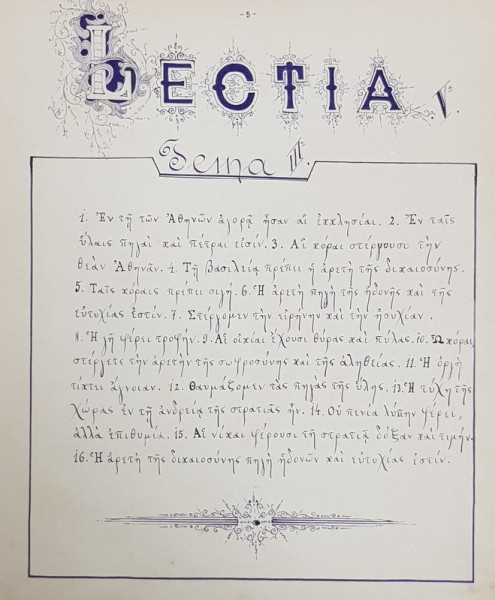 - 5 -
LECTIA V.
Tema III.
1. Ἐν τῇ τῶν Ἀθηνῶν ἀγορᾷ ἦσαν αἱ ἐκκλησίαι. 2. Ἐν ταῖς
ὕλαις πηγαὶ καὶ πέτραι εἰσίν. 3. Αἱ κόραι στέργουσι τὴν
θεὰν Ἀθηνᾶν. 4. Τῇ βασιλείᾳ πρέπει ἡ ἀρετὴ τῆς δικαιοσύνης.
5. Ταῖς κόραις πρέπει σιγή. 6. Ἡ ἀρετὴ πηγὴ τῆς ἡδονῆς καὶ τῆς
εὐτυχίας ἐστίν. 7. Στέργομεν τὴν εἰρήνην καὶ τὴν ἡσυχίαν.
8. Ἡ γῆ φέρει τροφήν. 9. Αἱ οἰκίαι ἔχουσι θύρας καὶ πύλας. 10. Ὦ κόραι,
στέργετε τὴν ἀρετὴν τῆς σωφροσύνης καὶ τῆς ἀληθείας. 11. Ἡ ὀργὴ
τίκτει ἄγνοιαν. 12. Θαυμάζομεν τὰς πηγὰς τῆς ὕλης. 13. Ἡ τύχη τῆς
χώρας ἐν τῇ ἀνδρείᾳ τῆς στρατιᾶς ἦν. 14. Οὐ πενία λυπην φέρει,
ἀλλὰ ἐπιθυμία. 15. Αἱ νίκαι φέρουσι τῇ στρατιᾷ δόξαν καὶ τιμήν.
16. Ἡ ἀρετὴ τῆς δικαιοσύνης πηγὴ ἡδονῶν καὶ εὐτυχίας ἐστίν.